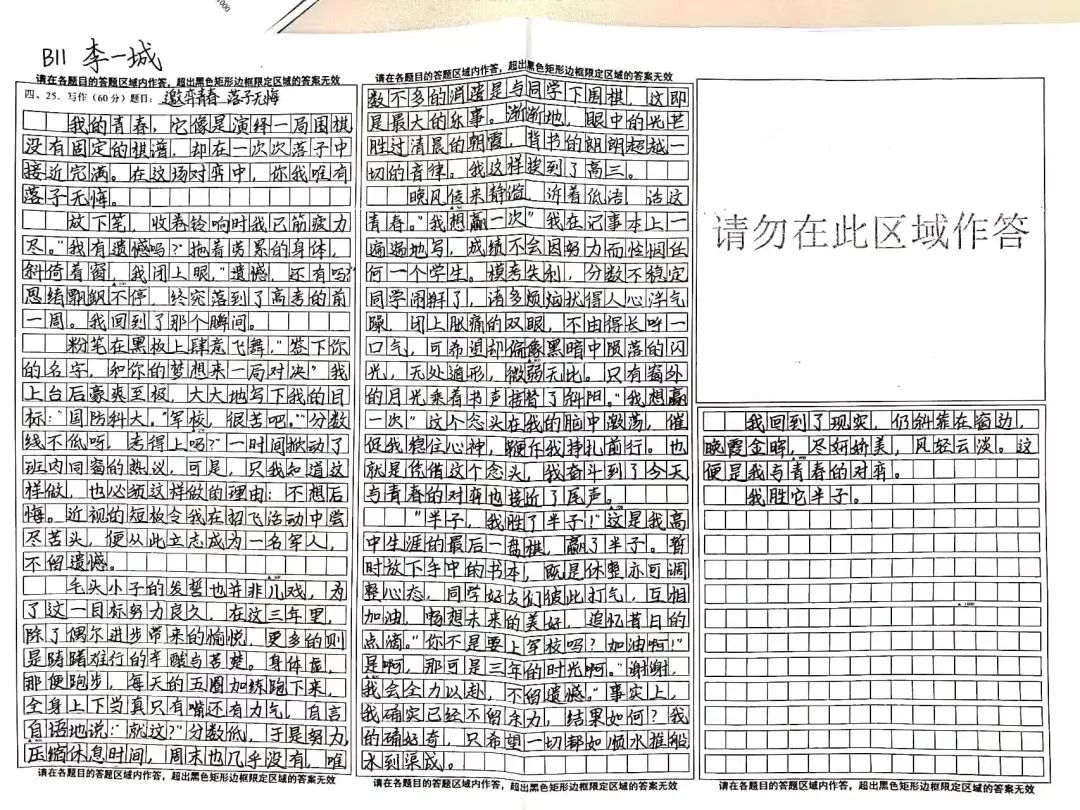 1000
B11 李一城
请在各题目的答题区域内作答，超出黑色矩形边框限定区域的答案无效
四、25. 写作(60分) 题目：邀弈青春 落子无悔
我的青春，它像是演绎一局围棋
没有固定的棋谱，却在一次次落子中
接近完满。在这场对弈中，你我唯有
落子无悔。
放下笔，收卷铃响时我已筋疲力
尽。"我有遗憾吗？"拖着劳累的身体，
斜倚着窗，我闭上眼，"遗憾，还有吗？"
思绪飘飘不停，终究落到了高考的前
一周。我回到了那个瞬间。
粉笔在黑板上肆意飞舞，"签下你
的名字，和你的梦想来一局对决"我
上台后豪爽至极，大大地写下我的目
标："国防科大。"军校，很苦吧。""分数
线不低呀，考得上吗？"一时间掀动了
班内同窗的热议，可是，只我知道这
样做，也必须这样做的理由：不想后
悔。近视的短板令我在招飞活动中尝
尽苦头，便从此立志成为一名军人，
不留遗憾。
毛头小子的发誓也并非儿戏，为
了这一目标努力良久，在这三年里，
除了偶尔进步带来的愉悦，更多的则
是踌躇难行的辛酸与苦楚。身体虚，
那便跑步，每天的五圈加练跑下来，
全身上下当真只有嘴还有力气，自言
自语地说："就这？"分数低，于是努力
压缩休息时间，周末也几乎没有，唯
请在各题目的答题区域内作答，超出黑色矩形边框限定区域的答案无效
请在各题目的答题区域内作答，超出黑色矩形边框限定区域的答案无效
数不多的消遣是与同学下围棋，这即
是最大的乐事。渐渐地，眼中的光芒
胜过清晨的朝霞，背书的朗朗超越一
切的音律。我这样挨到了高三。
晚风传来静谧，诉着低语，话这
青春。"我想赢一次"我在记事本上一
遍遍地写，成绩不会因努力而怜悯任
何一个学生。模考失利，分数不稳定
同学闹掰了，诸多烦恼扰得人心浮气
躁，闭上胀痛的双眼，不由得长呼一
口气，可希望却偏像黑暗中陨落的闪
光，无处遁形，微弱无比。只有窗外
的月光乘着书声接替了斜阳。"我想赢
一次"这个念头在我的脑中激荡，催
促我稳住心神，鞭仵我挣扎前行。也
就是凭借这个念头，我奋斗到了今天
与青春的对弈也接近了尾声。
"半子，我胜了半子！"这是我高
中生涯的最后一盘棋，赢了半子。暂
时放下手中的书本，既是休整亦可调
整心态，同学好友们彼此打气，互相
加油，畅想未来的美好，追忆昔日的
点滴。"你不是要上军校吗？加油啊！"
是啊，那可是三年的时光啊。"谢谢，
我会全力以赴，不留遗憾。"事实上，
我确实已经不留余力，结果如何？我
的确好奇，只希望一切都如顺水推船
水到渠成。
请在各题目的答题区域内作答，超出黑色矩形边框限定区域的答案无效
请勿在此区域作答
我回到了现实，仍斜靠在窗边，
晚霞金晖，尽妍娇美，风轻云淡。这
便是我与青春的对弈。
我胜它半子。
请在各题目的答题区域内作答，超出黑色矩形边框限定区域的答案无效